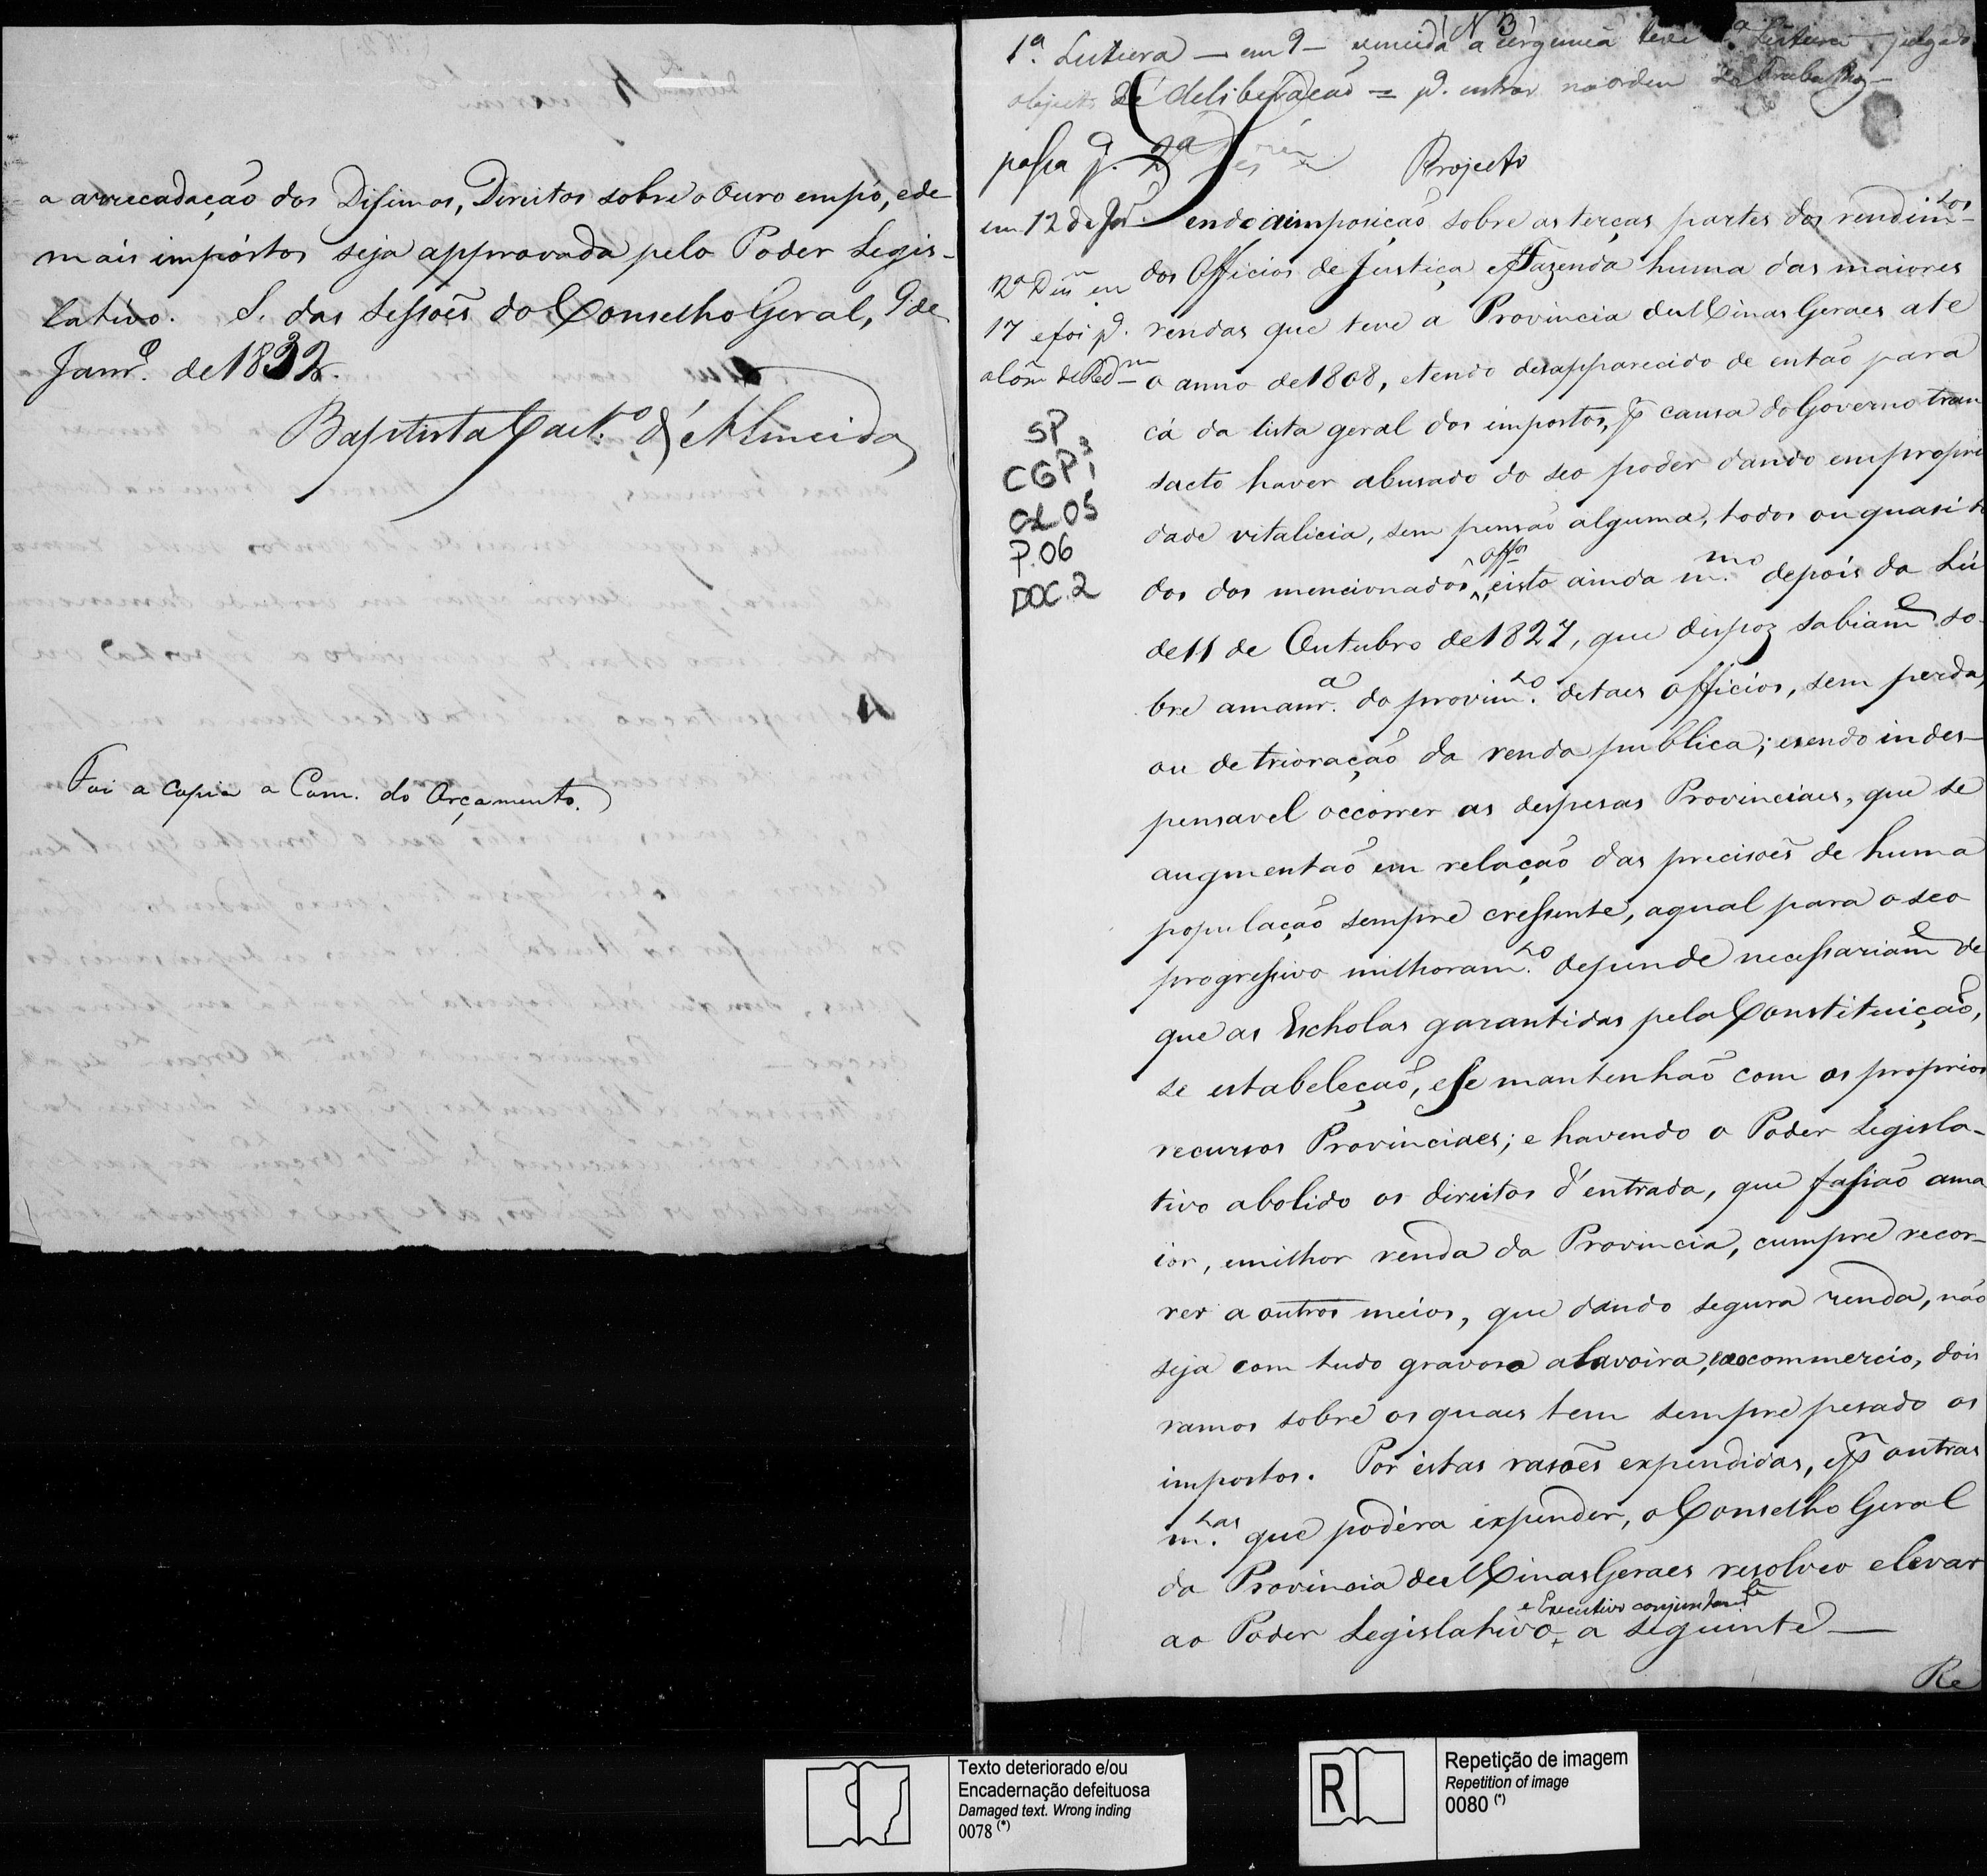 a arrecadação dos Disimos, Direitos sobre o Ouro empó, ede
mais impóstos seja approvada pelo Poder Legis-
lativo. S. das Sessoẽs do Conselho Geral, 9 de
Janr.º de 1832.
Baptista Caet.º d'Almeida
Foi a Copia a Com. do Orçamento.
N 3
1.ª Leitura — em 9 — vencida a urgencia teve 2.ª Leitura, julgado
objecto de deliberação = p.ª entrar na ordem dos Trabalhos —
passa p.ª 2ª
Projecto
em 12 de Jan.º
Sendo a imposição sobre as terças partes dos rendim.tos
2ª Dis.m em
17 e foi p.ª
a Com.m de Red.m
dos Officios de Justiça e Fazenda huma das maiores
rendas que teve a Provincia de Minas Geraes até
o anno de 1808, e tendo desapparecido de então para
cá da lista geral dos impostos, p.r causa do Governo tran
sacto haver abusado do seo poder dando em proprie
dade vitalicia, sem pensão alguma, todos ou quasi to
dos dos mencionados off.os, e isto ainda m.mo depóis da Lei
de 11 de Outubro de 1827, que dispoz sabiam.e so-
bre a manr.a do provim.to de taes officios, sem perda,
ou detrioração da renda publica; e sendo indes-
pensavel occorrer as despesas Provinciaes, que se
augmentaõ em relação das precisoẽs de huma
população sempre cressente, aqual para o seo
progressivo milhoram.to depende necessariam.e de
que as Escholas garantidas pela Constituição,
se estabeleçaõ, e se mantenhaõ com os proprios
recursos Provinciaes; e havendo o Poder Legisla-
tivo abolido os direitos d'entrada, que fasiaõ a ma
ior, e milhor renda da Provincia, cumpre recor-
rer a outros meios, que dando segura renda, não
seja com tudo gravoso a lavoira, e ao commercio, dois
ramos sobre os quaes tem sempre pesado os
impostos. Por estas rasoẽs expendidas, e p.r outras
m.tas que podéra expender, o Conselho Geral
da Provincia de Minas Geraes resolveo elevar
e Executivo conjuntam.te
ao Poder Legislativo, a seguinte —
Re
SP
CGP 3
1
CX.05
P.06
DOC.2
Texto deteriorado e/ou
Encadernação defeituosa
Damaged text. Wrong inding
0078 (*)
R
Repetição de imagem
Repetition of image
0080 (*)